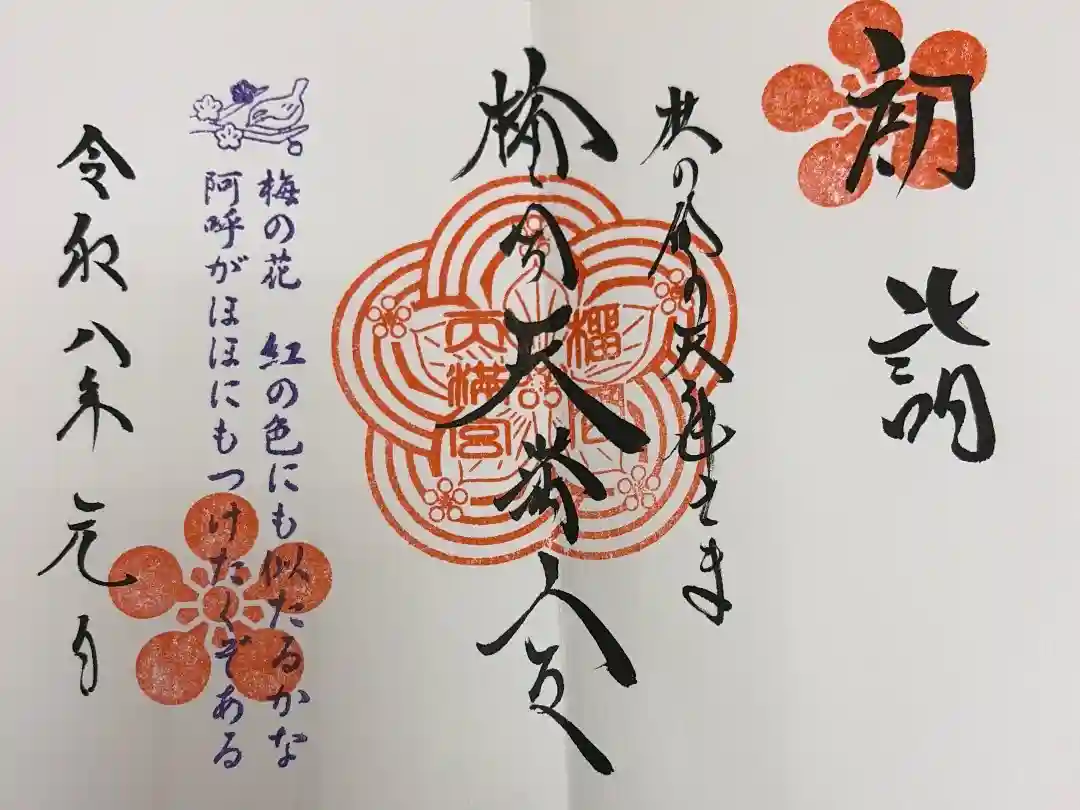 初詣
の天神さま
榴岡天満宮
榴岡
天満宮
梅の花 紅の色にも似たるかな
阿呼がほほにもつけたくぞある
令和八年 元旦